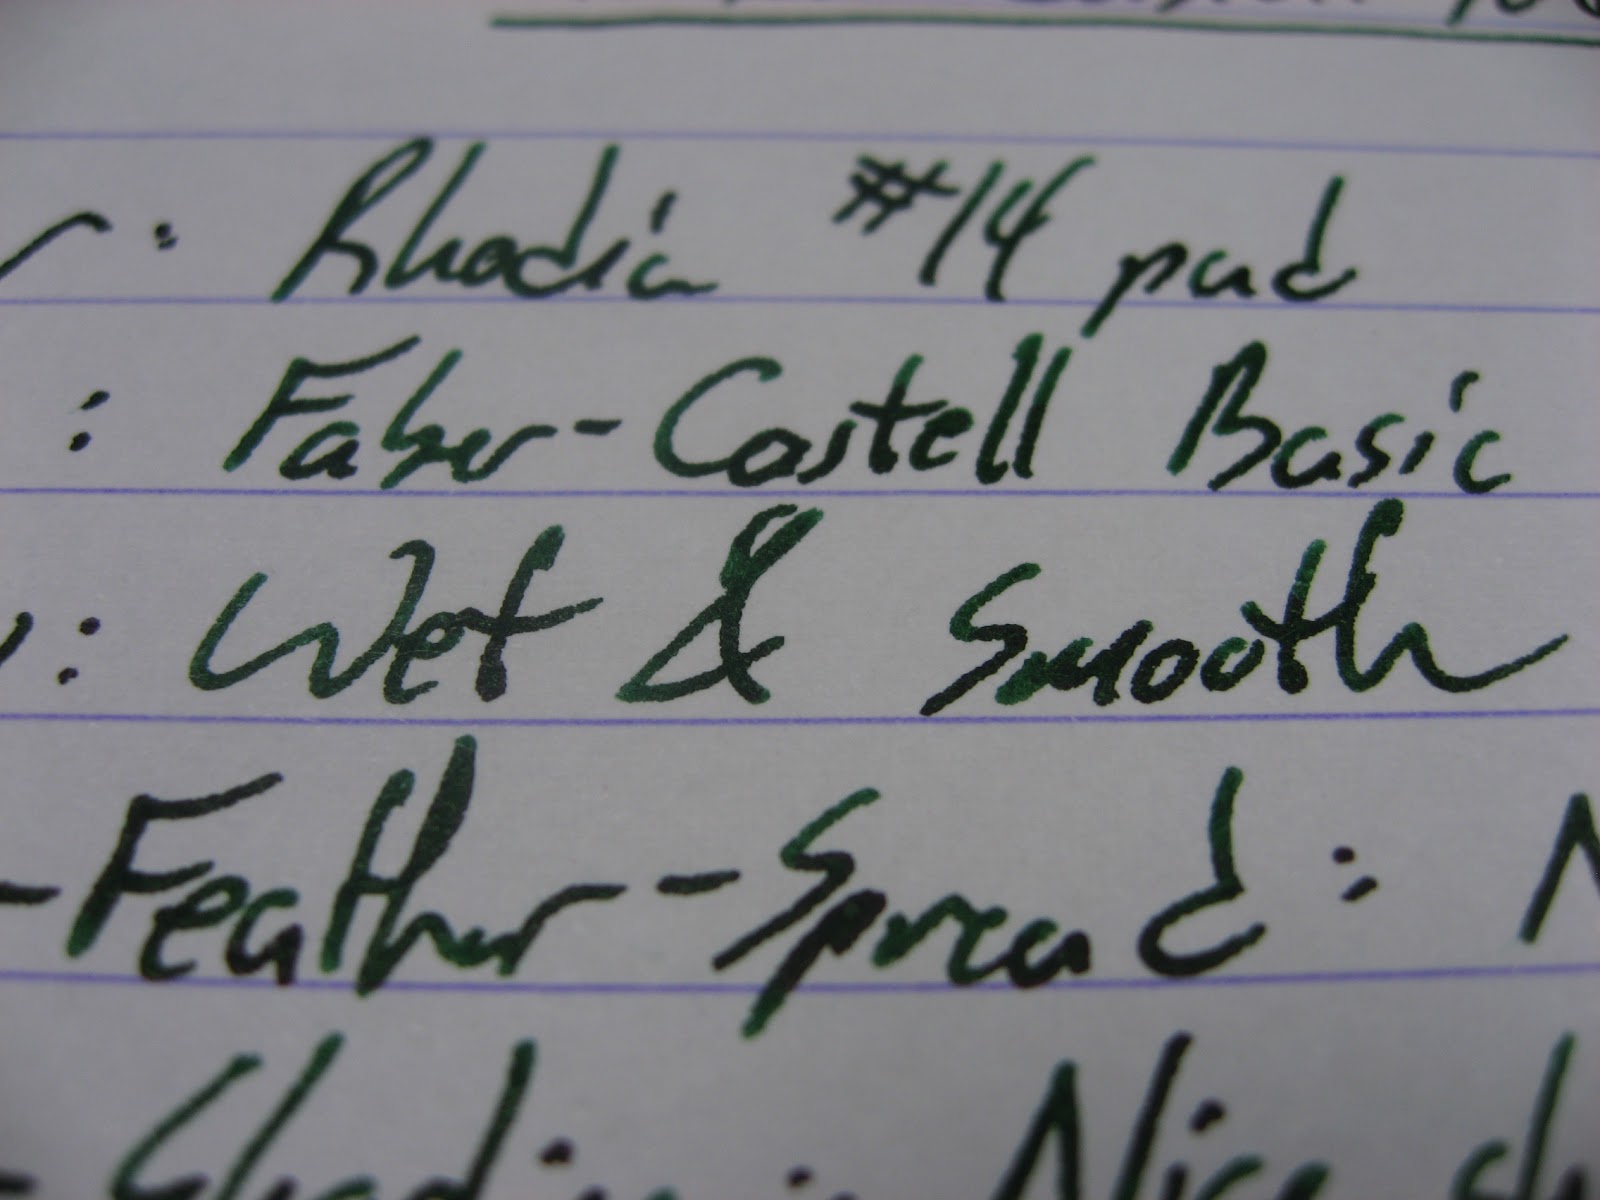 : Rhodia #14 pad
: Faber-Castell Basic
: Wet & Smooth
-Feather--Spread:
-Shading: Nice